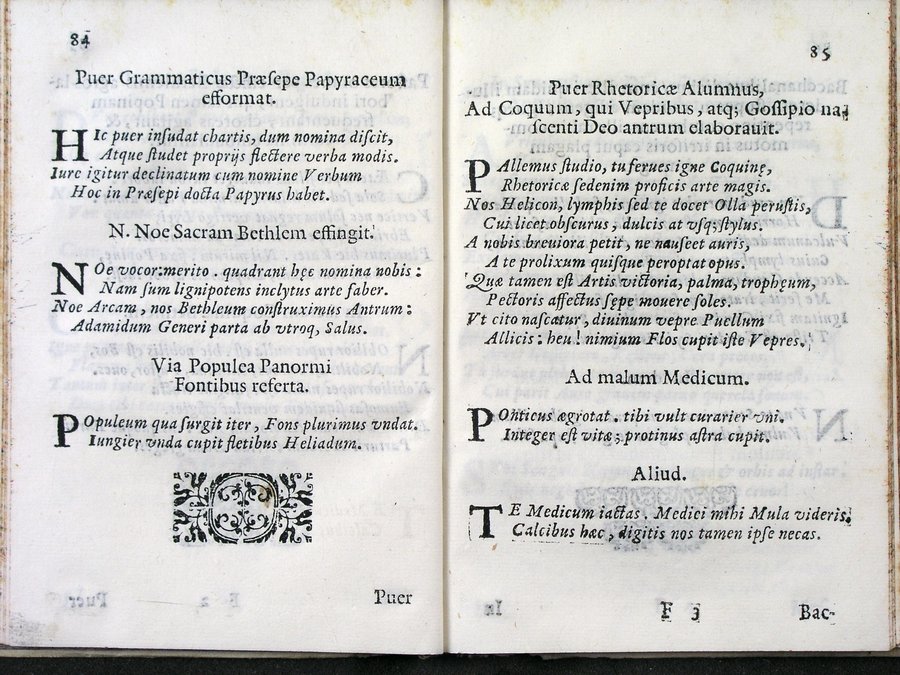 84
Puer Grammaticus Præsepe Papyraceum
efformat.
HIc puer insudat chartis, dum nomina discit,
Atque studet proprijs flectere verba modis.
Iure igitur declinatum cum nomine Verbum
Hoc in Præsepi docta Papyrus habet.
N. Noe Sacram Bethlem effingit.
NOe vocor: merito. quadrant hęc nomina nobis:
Nam sum lignipotens inclytus arte faber.
Noe Arcam, nos Bethleum construximus Antrum:
Adamidum Generi parta ab vtroq; Salus.
Via Populea Panormi
Fontibus referta.
POpuleum qua surgit iter, Fons plurimus vndat.
Iungier vnda cupit fletibus Heliadum.
Puer
85
Puer Rhetoricæ Alumnus,
Ad Coquum, qui Vepribus, atq; Gossipio na-
scenti Deo antrum elaborauit.
PAllemus studio, tu ferues igne Coquine,
Rhetoricæ sed enim proficis arte magis.
Nos Helicon, lymphis sed te docet Olla perustis,
Cui licet obscurus, dulcis at vsq; stylus.
A nobis breuiora petit, ne nauseet auris,
A te prolixum quisque peroptat opus.
Quæ tamen est Artis victoria, palma, trophęum,
Pectoris affectus sępe mouere soles.
Vt cito nascatur, diuinum vepre Puellum
Allicis: heu! nimium Flos cupit iste Vepres.
Ad malum Medicum.
POnticus ægrotat. tibi vult curarier vni.
Integer est vitæ; protinus astra cupit.
Aliud.
TE Medicum iactas. Medici mihi Mula videris.
Calcibus hæc, digitis nos tamen ipse necas.
F 3
Bac-